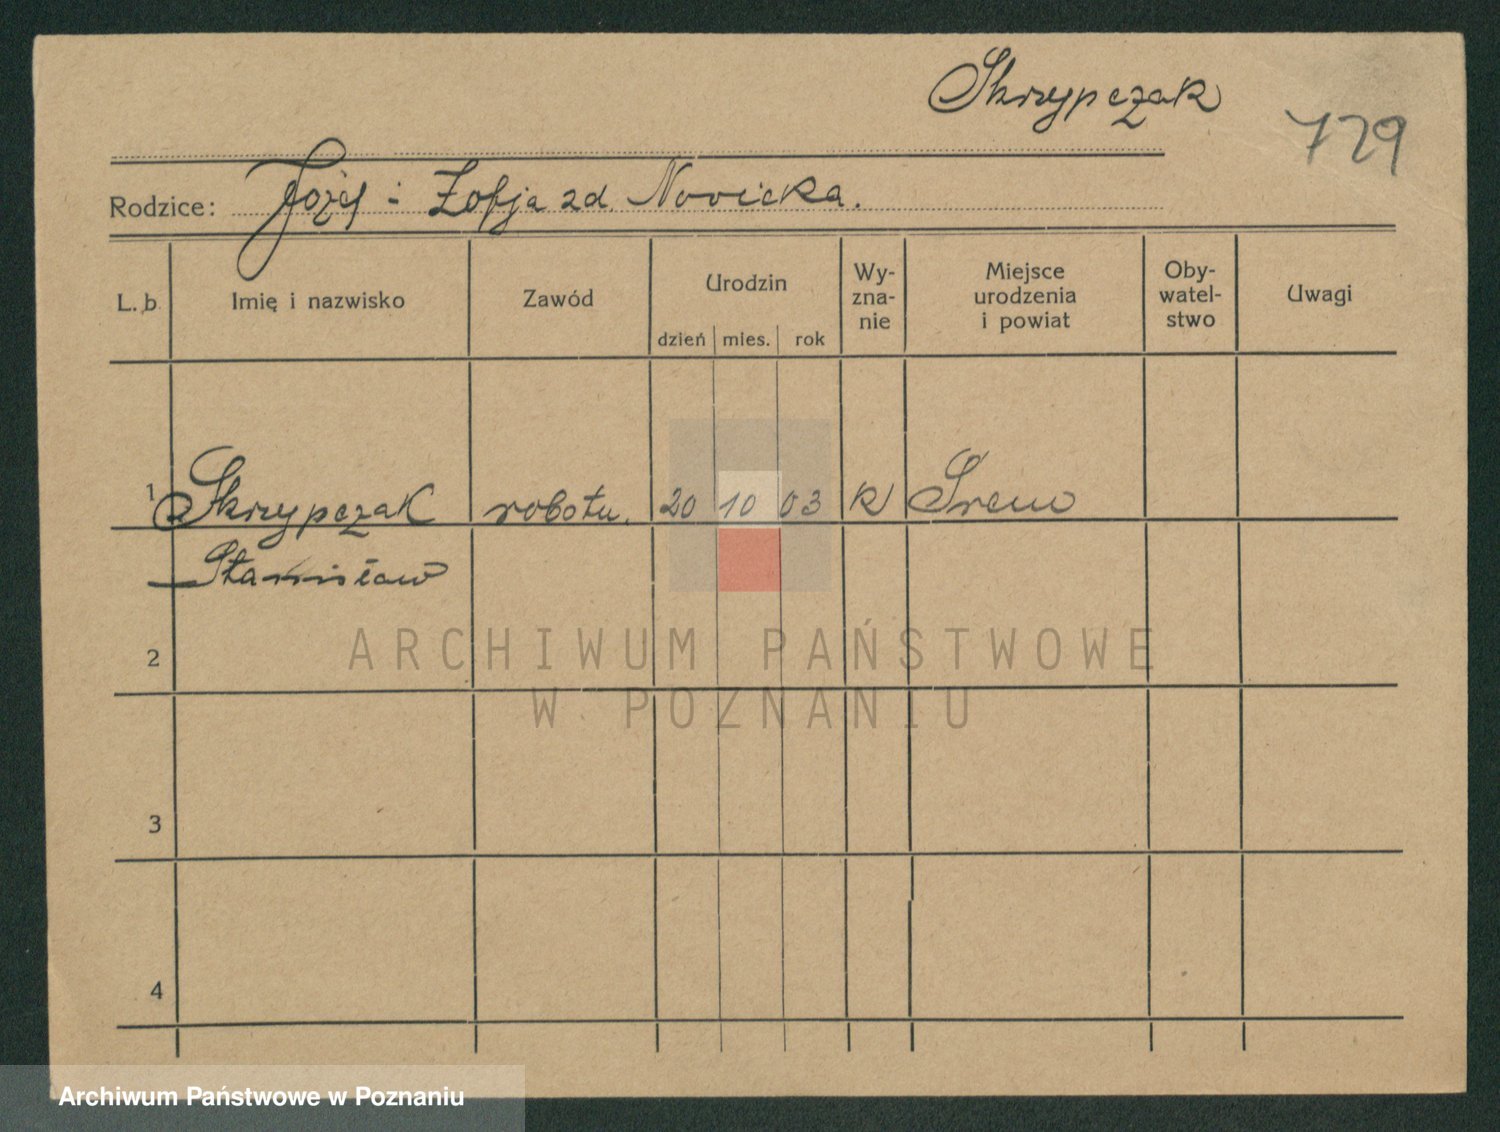 Skrzypczak
729
Rodzice: Józef i Zofja zd. Nowicka.
L. b. Imię i nazwisko Zawód Urodzin dzień mies. rok Wy-zna-nie Miejsce urodzenia i powiat Oby-watel-stwo Uwagi
1 Skrzypczak robotn. 20 10 03 K Śrem
Stanisław
2
ARCHIWUM PAŃSTWOWE
W POZNANIU
3
4
Archiwum Państwowe w Poznaniu